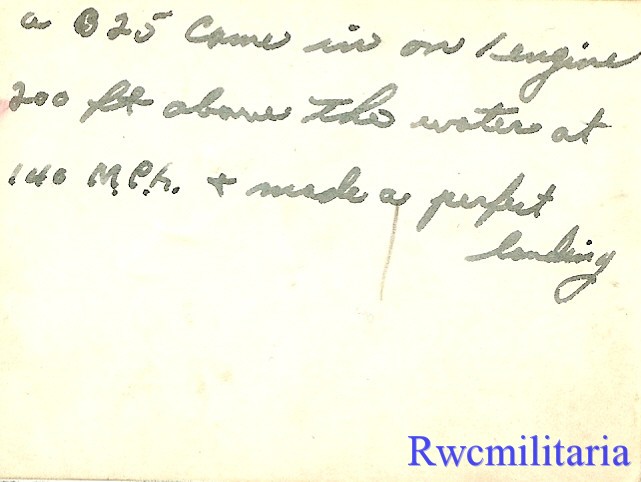 a B25 Came in on 1 engine
200 ft above the water at
140 M.P.h. + made a perfect
landing
Rwcmilitaria